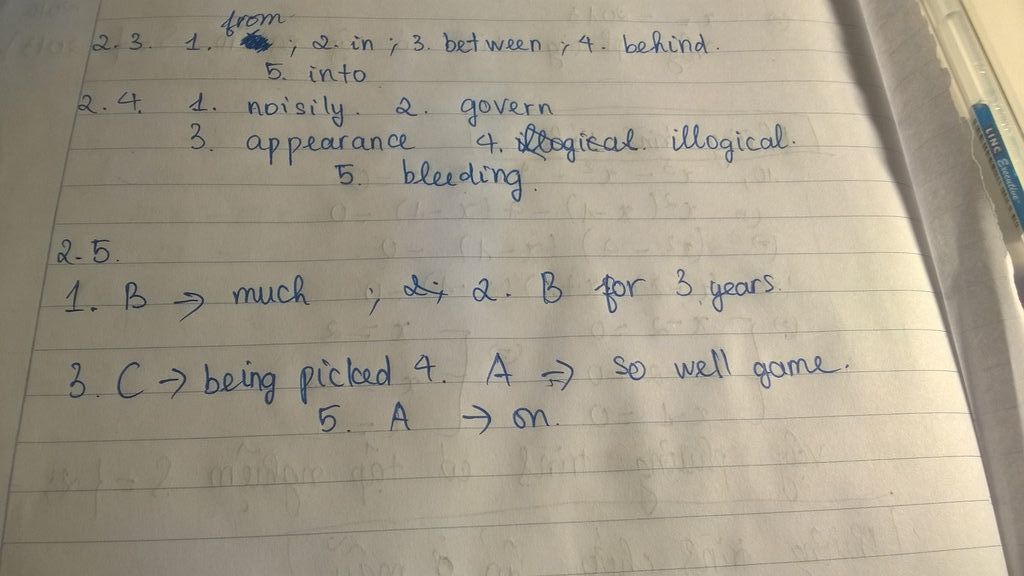 from
2.3. 1. ; 2. in ; 3. between ; 4. behind.
5. into
2.4. 1. noisily. 2. govern
3. appearance 4. illogical illogical.
5. bleeding.
2-5.
1. B → much ; 2; 2. B for 3 years.
3. C → being picked 4. A => so well game.
5. A → on.
LINC Executive